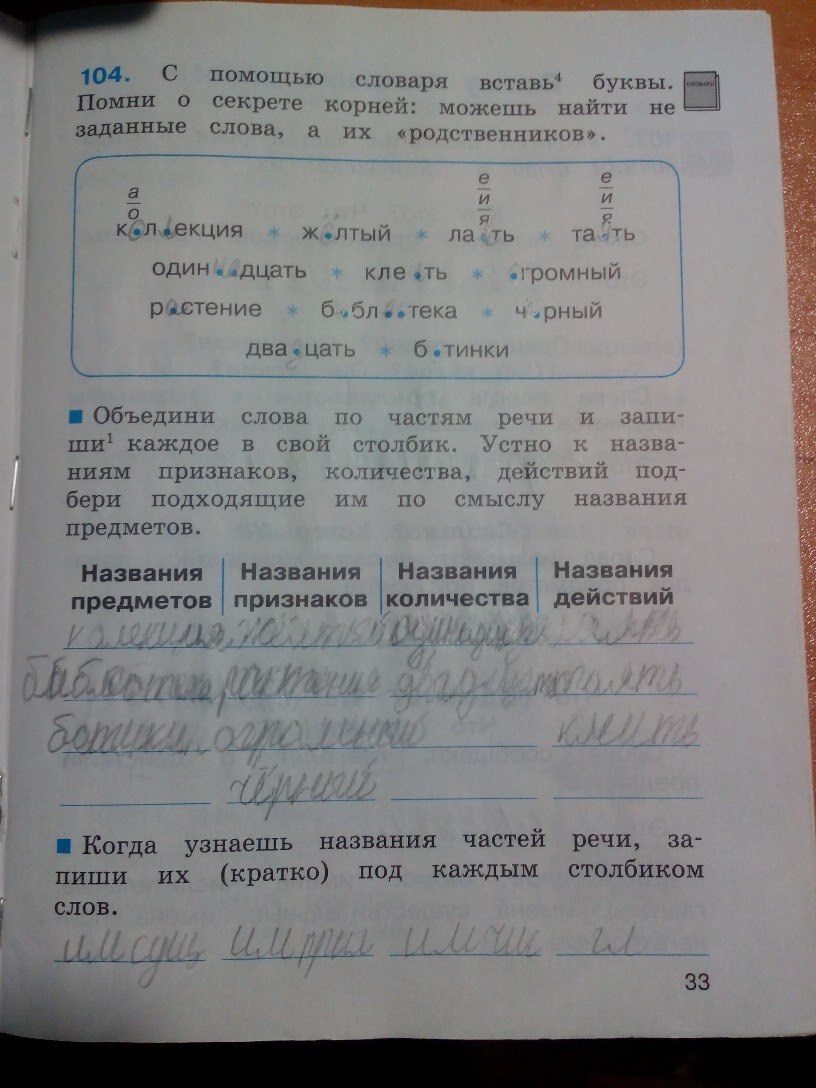 104. С помощью словаря вставь⁴ буквы.
Помни о секрете корней: можешь найти не
заданные слова, а их «родственников».
СЛОВАРЬ
а е е
о и и
я я
кол.екция * жёлтый * лаять * таять
один..дцать * клеить * огромный
растение * библ..тека * чёрный
два.цать * б.тинки
Объедини слова по частям речи и запи-
ши¹ каждое в свой столбик. Устно к назва-
ниям признаков, количества, действий под-
бери подходящие им по смыслу названия
предметов.
Названия Названия Названия Названия
предметов признаков количества действий
колекция жёлтый одинадцать лаять
библиотека растение двадцать таять
ботинки огромный клеить
чёрный
Когда узнаешь названия частей речи, за-
пиши их (кратко) под каждым столбиком
слов.
им сущ им прил им чис гл
33